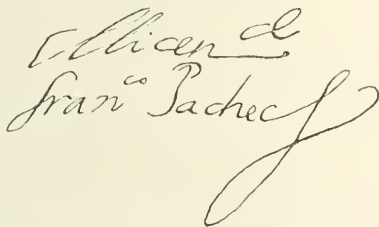 El licen^do
fran^co Pacheco